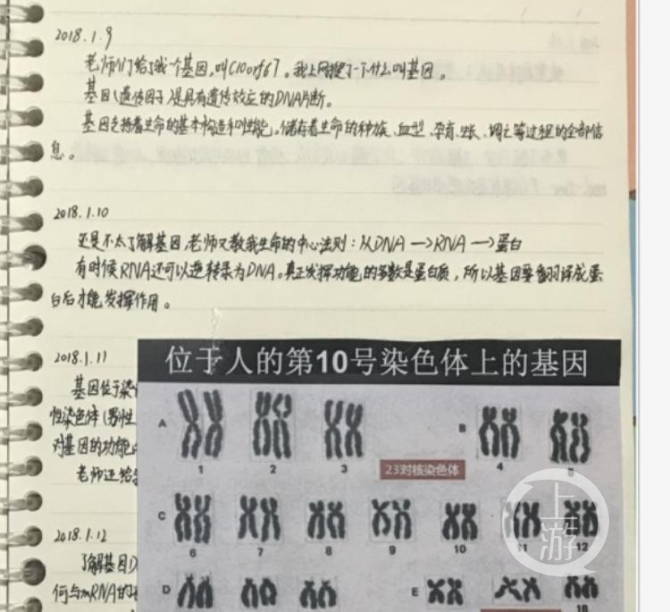 2018.1.9
老师们给了我一个基因,叫C10orf67。我上网搜了一下什么叫基因。
基因(遗传因子)是具有遗传效应的DNA片断。
基因支持着生命的基本构造和性能。储存着生命的种族、血型、孕育、生长、凋亡等过程的全部信
息。
2018.1.10
还是不太了解基因,老师又教我生命的中心法则:从DNA→RNA→蛋白
有时候RNA还可以逆转录为DNA。真正发挥功能的多数是蛋白质,所以基因要翻译成蛋
白后才能发挥作用。
2018.1.11
基因位于染
性染色体(男性
对基因的功能
老师还给
2018.1.12
了解基因D
何与mRNA的
位于人的第10号染色体上的基因
A
B
1 2 3
23对核染色体
4 5
C
6 7 8 9 10 11 12
D
E
18
上游